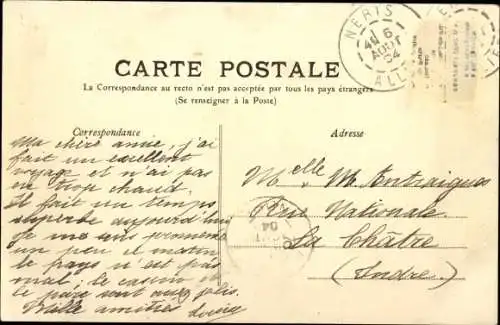 NERIS
4E 6
AOUT
04
ALL
CARTE POSTALE
La Correspondance au recto n'est pas acceptée par tous les pays étrangers
(Se renseigner à la Poste)
Correspondance
Ma chère amie, j'ai
fait un excellent
voyage et n'ai pas
eu trop chaud.
Il fait un temps
superbe aujourd'hui
je me suis promenée
un peu ce matin
le pays n'est pas
mal, le casino et
le parc sont assez jolis.
Mille amitiés
Adresse
Melle M. Antraigues
Rue Nationale
La Châtre
(Indre)
04